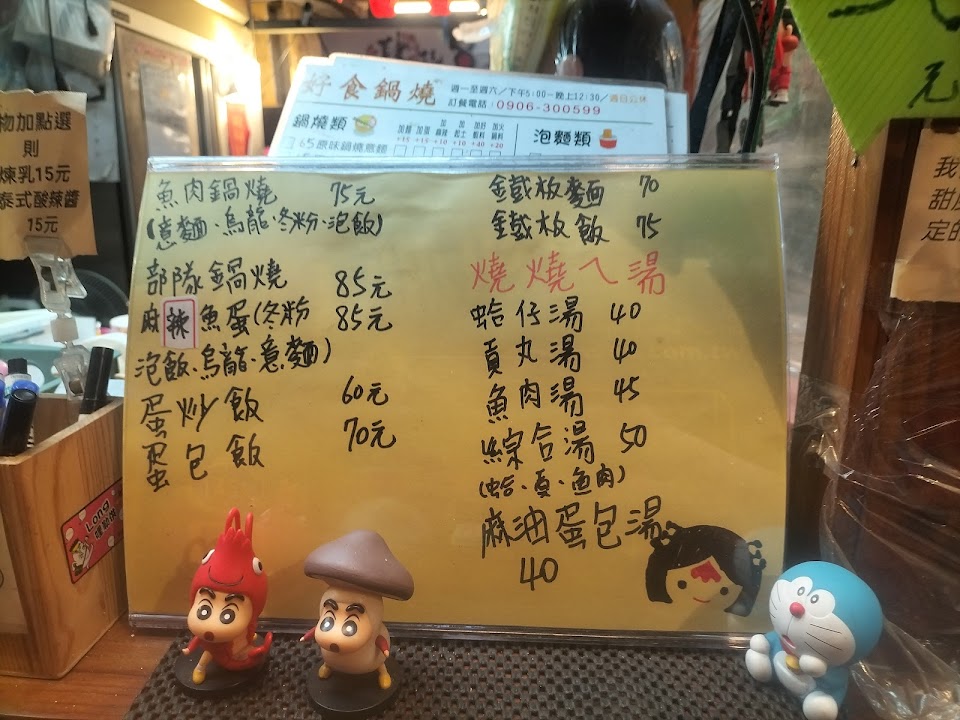 好食鍋燒 週一至週六／下午5:00－晚上12:30／週日公休
訂餐電話：0906-300599
鍋燒類
加麵 +15
加蛋 +15
+10
+10
加好料 +40
加火鍋料 +20
泡麵類
65原味鍋燒意麵
魚肉鍋燒 75元
(意麵·烏龍·冬粉·泡飯)
部隊鍋燒 85元
麻辣魚蛋(冬粉 85元
泡飯·烏龍·意麵)
蛋炒飯 60元
蛋包飯 70元
鐵板麵 70
鐵板飯 75
燒燒ㄟ湯
蛤仔湯 40
貢丸湯 40
魚肉湯 45
綜合湯 50
(蛤·貢·魚肉)
麻油蛋包湯
40
物加點選
則
煉乳15元
泰式酸辣醬
15元
元
我
甜
定的
Long